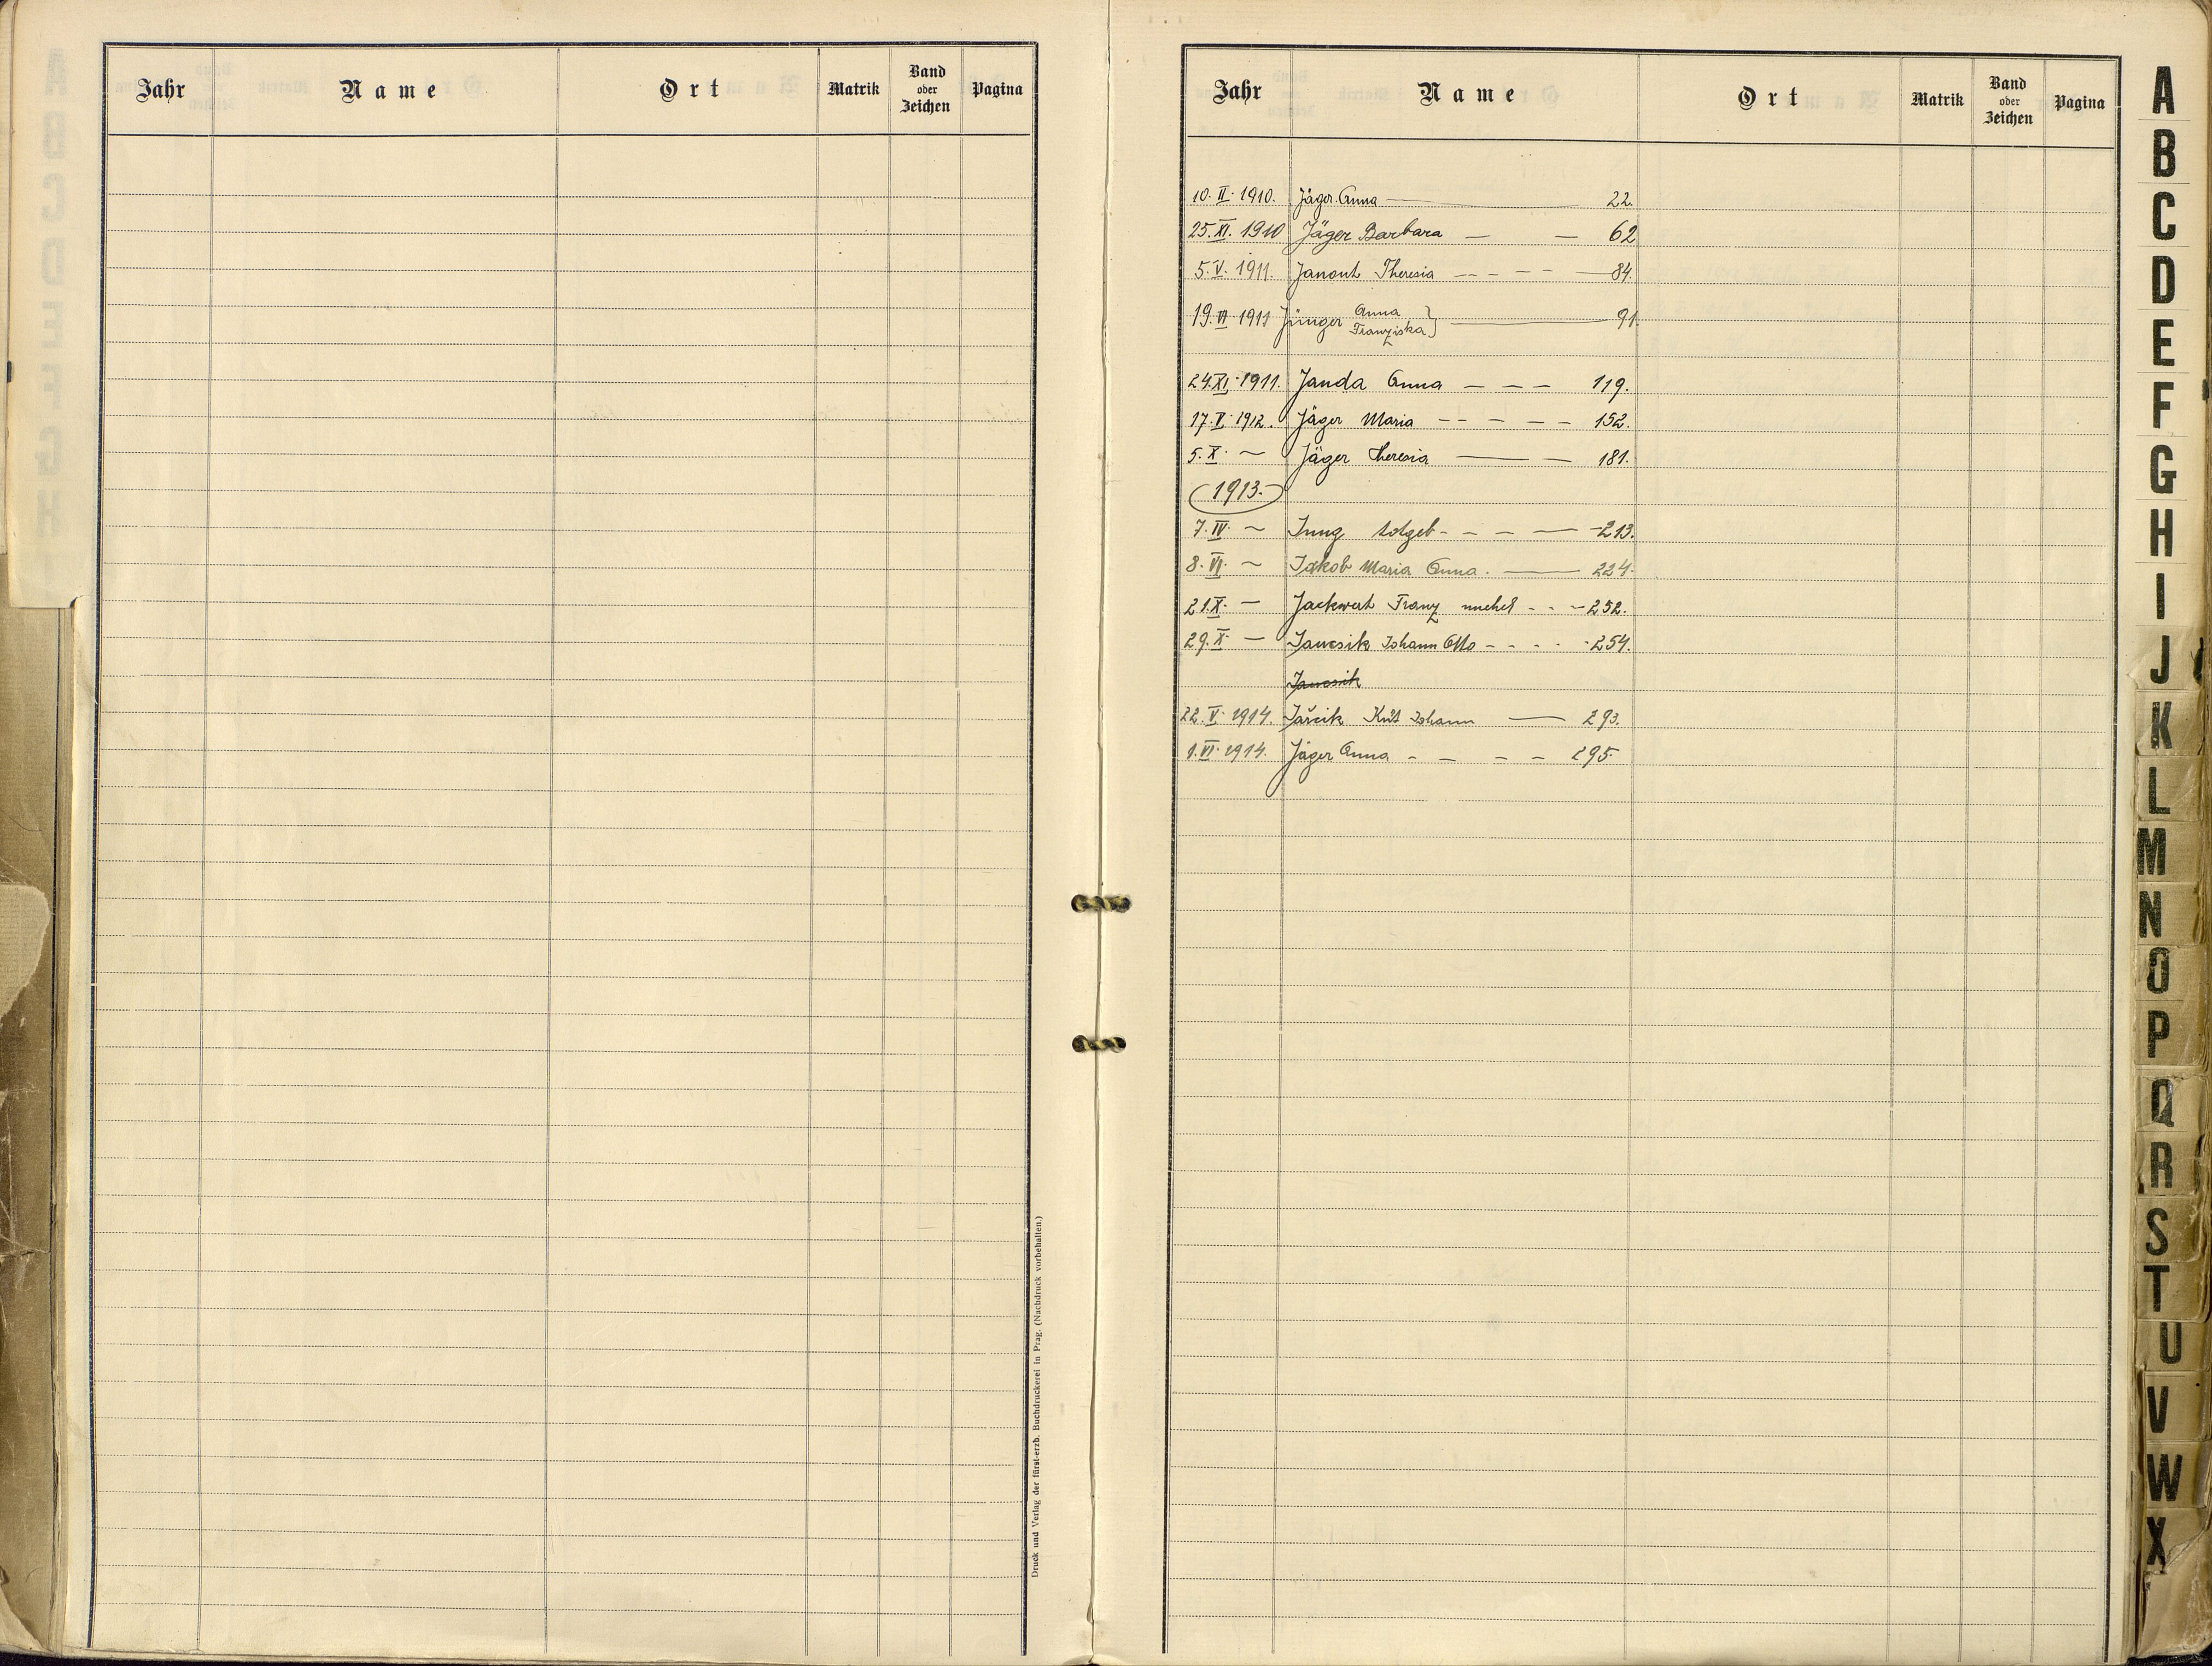 Jahr Name Ort Matrik Band oder Zeichen Pagina
Druck und Verlag der fürst-erzb. Buchdruckerei in Prag. (Nachdruck vorbehalten.)
Jahr Name Ort Matrik Band oder Zeichen Pagina
10. II. 1910. Jäger Anna — 22.
25. XI. 1910 Jäger Barbara — — 62
5. V. 1911. Janout Theresia — — — — 84.
19. VI 1911 Jünger Anna Franziska } — 91.
24. XI. 1911. Janda Anna — — — 119.
17. V. 1912. Jäger Maria — — — — — 152.
5. X. ~ Jäger Theresia — — 181.
1913.
7. IV. ~ Jung totgeb - - - — - 213.
8. VI. ~ Jakob Maria Anna. — 224.
21. X. — Jackwert Franz unehel - - - 252.
29. X. — Jancsik Johann Otto - - - - 254.
Jancsik
22. V. 1914. Johann — 293.
1. VI. 1914. Jäger Anna - — — — 295.
A
B
C
D
E
F
G
H
I
J
K
L
M
N
O
P
Q
R
S
T
U
V
W
X